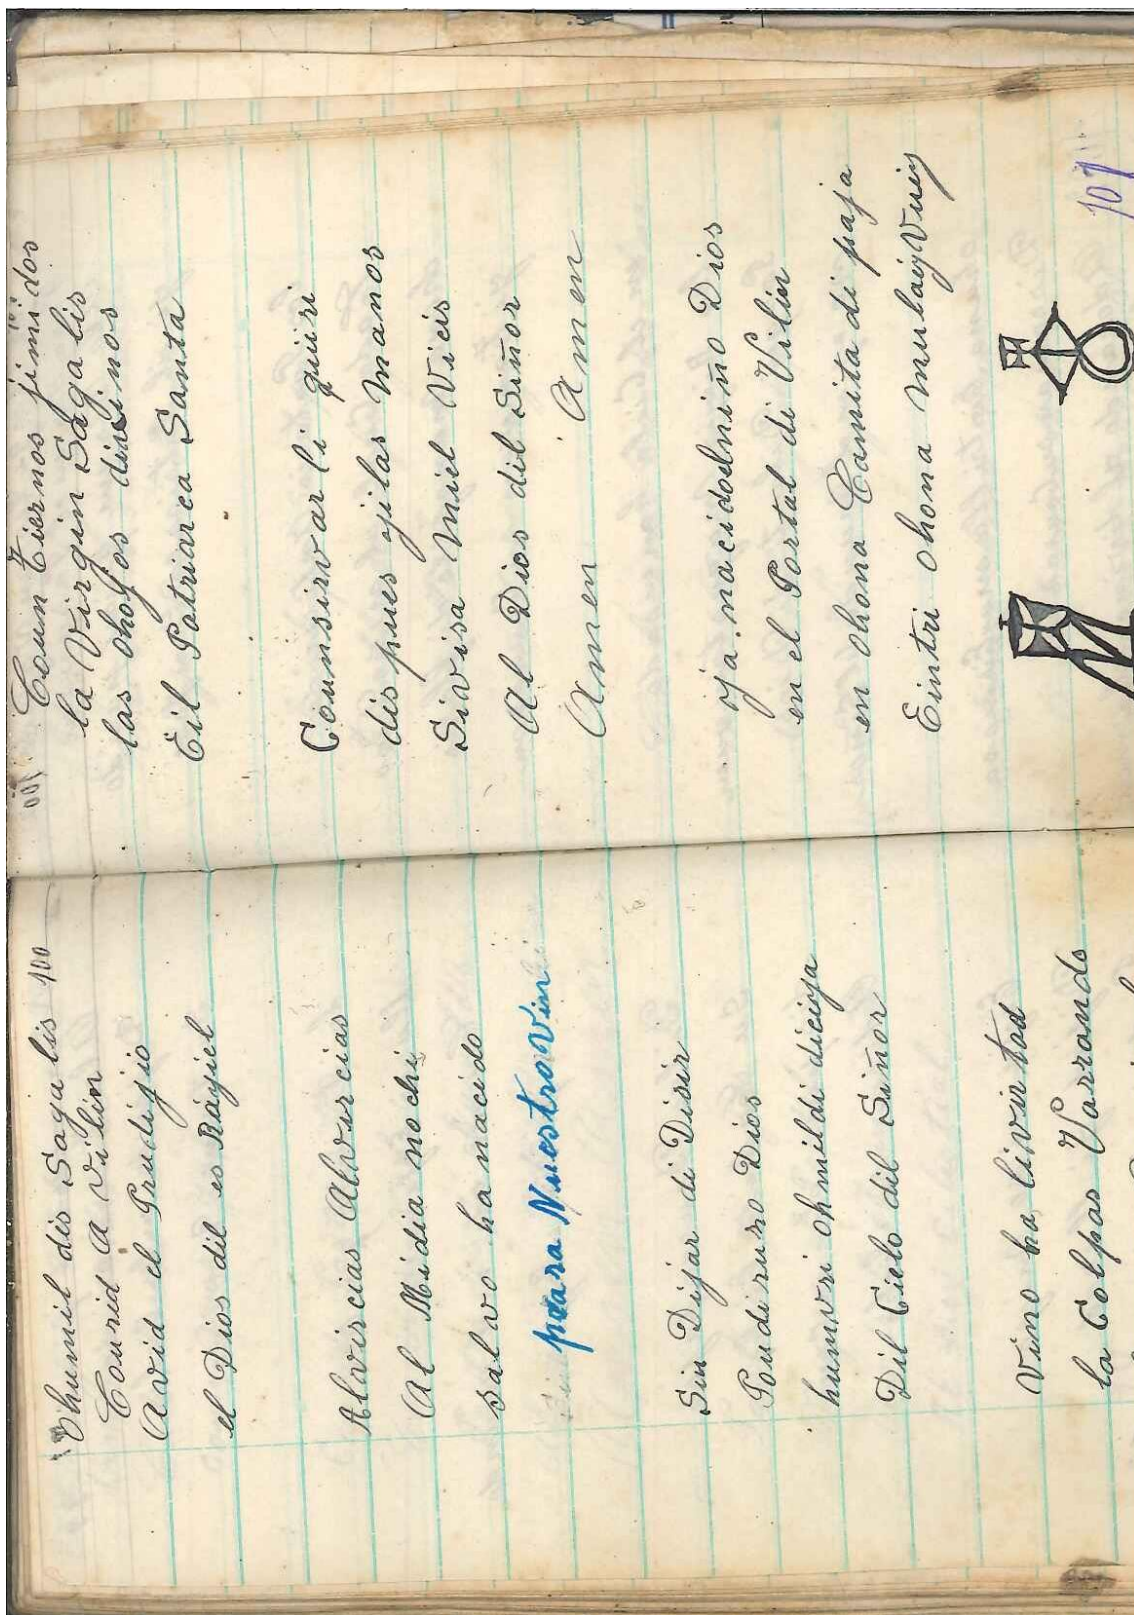 Ohumil dis Sagalis 100
Courid a vilin
Avid el Prudijio
el Dios dil es Ráyiel
Alvircias Alvircias
Al Midia nochi
salvo ha nacido
para Nuestro Vin
Sin Dijar di Disir
Poudiruro Dios
humvri ohmildi diciya
Dil Cielo dil Siñor
Vino ha livirtad
la Colpas Varrando
Coun Tiernos jimidos
la Virgin Sagalis
las ohojos divinos
Eil Patriarca Santa
Counsirvar li quiri
dispues ejilas manos
Sivisa Miel Vicis
Al Dios dil Siñor
Amen Amen
oja. nacidoelniño Dios
en el Portal di Vilin
en ohona Camita di paja
Eintri ohona mulaiyVuiy
101